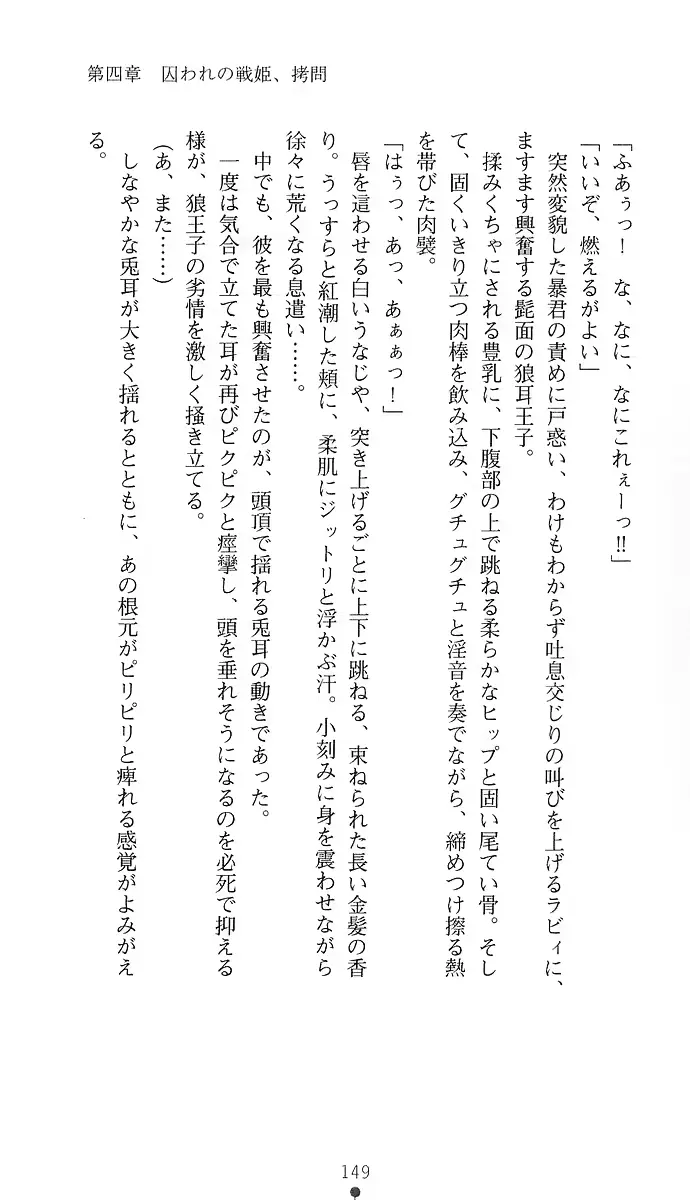 第四章　囚われの戦姫、拷問
「ふあぅっ！　な、なに、なにこれぇーっ!!」
「いいぞ、燃えるがよい」
　突然変貌した暴君の責めに戸惑い、わけもわからず吐息交じりの叫びを上げるラビィに、
ますます興奮する髭面の狼耳王子。
　揉みくちゃにされる豊乳に、下腹部の上で跳ねる柔らかなヒップと固い尾てい骨。そし
て、固くいきり立つ肉棒を飲み込み、グチュグチュと淫音を奏でながら、締めつけ擦る熱
を帯びた肉襞。
「はぅっ、あっ、あぁぁっ！」
　唇を這わせる白いうなじや、突き上げるごとに上下に跳ねる、束ねられた長い金髪の香
り。うっすらと紅潮した頬に、柔肌にジットリと浮かぶ汗。小刻みに身を震わせながら
徐々に荒くなる息遣い……。
　中でも、彼を最も興奮させたのが、頭頂で揺れる兎耳の動きであった。
　一度は気合で立てた耳が再びピクピクと痙攣し、頭を垂れそうになるのを必死で抑える
様が、狼王子の劣情を激しく掻き立てる。
（あ、また……）
　しなやかな兎耳が大きく揺れるとともに、あの根元がピリピリと痺れる感覚がよみがえ
る。
149